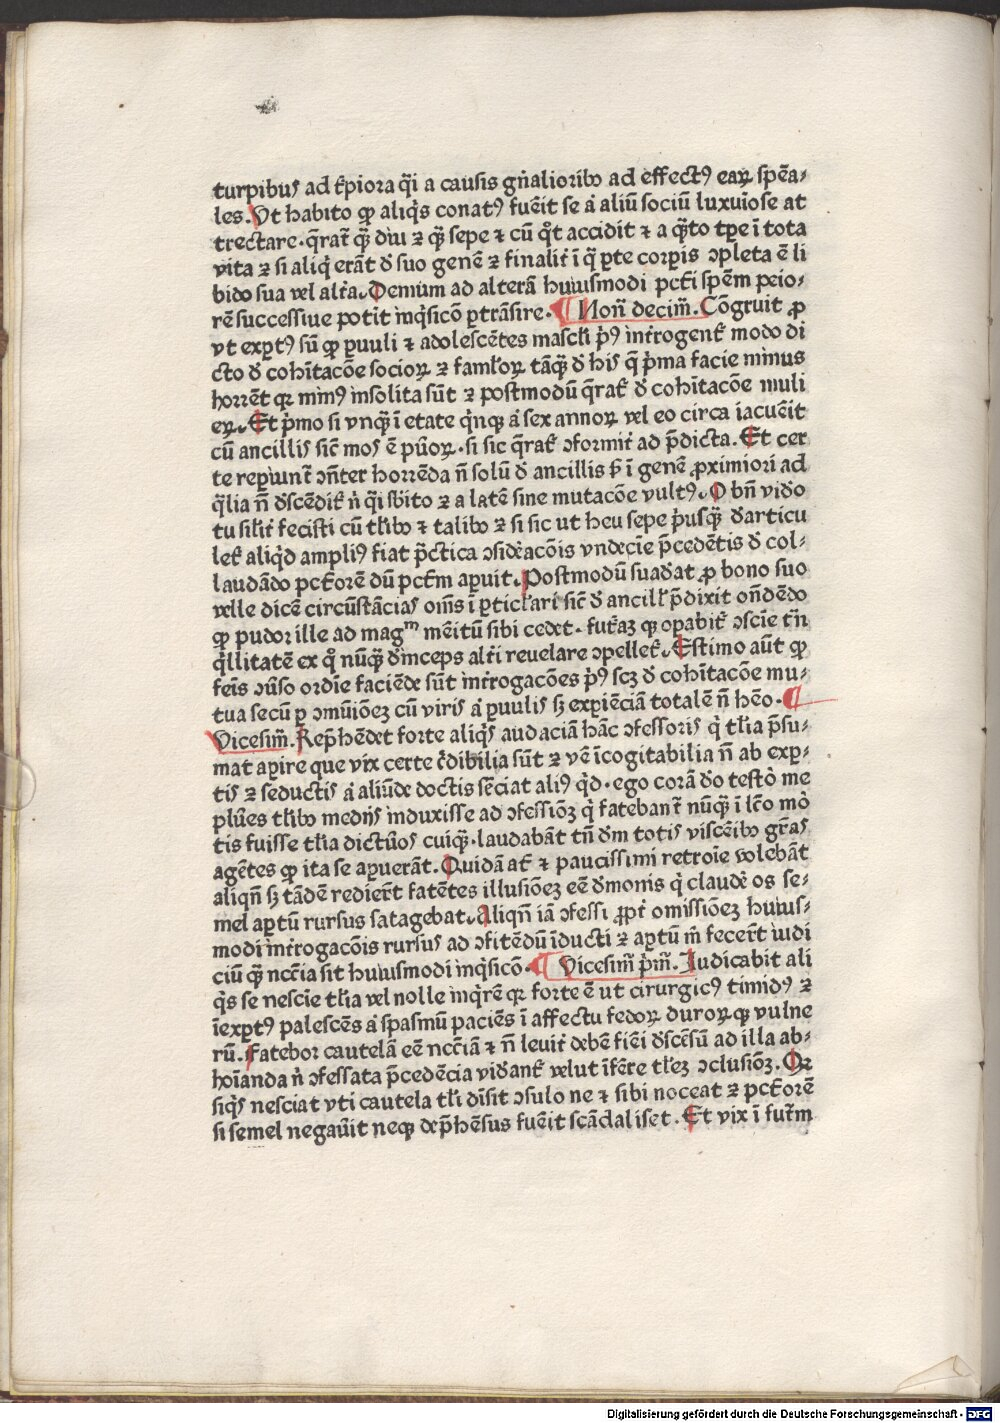 turpibus ad t̄piora q̄i a causis gn̄alioribꝰ ad effectꝰ eaꝝ spēa-
les. Vt habito ꝙ aliq̇s conatꝰ fuēit se a̍ aliū sociū luxuı̄ose at
trectare. q̄rat̄ qꝫ̄ diu ꝛ qꝫ̄ sepe ꝛ cū q̊t accidit ꝛ a qꝫ̄to tꝑe ī tota
vita ꝛ si aliq̇ erāt ď suo genē ꝛ finalit̍ ī q̄ ꝑte corꝑis ꝯpleta ē li
bido sua vel alt̍a. Demum ad alterā huiusmodi pctı̄ spēm peio-
rē successiue potit̍ inq̇sicō ꝑtrāsire. ¶ Non̄ decim̄. Cōgruit ꝓ
vt exꝑtꝰ sū ꝙ ꝑuuli ꝛ adolescētes mascłi p̍ꝰ int̍rogent̍ modo di
cto ď cohı̄tacōe socioꝝ ꝛ famłoꝝ tāqꝫ̄ ď his q̄ p̍ma facie minus
horrēt qꝛ mimꝰ insolita sūt ꝛ postmodū q̄rat̍ ď cohı̄tacōe muli
eꝝ. Et p̍mo si vnqꝫ̄ ī etate q̍nqꝫ a̍ sex annoꝝ vel eo circa iacuēit
cū ancillis sic̄ mos ē pūoꝝ. si sic q̄rat̍ ꝯformit̍ ad p̄dicta. Et cer
te reꝑiunt̄ ꝯn̄ter horrēda n̄ solū ď ancillis s̄ ī genē ꝓximiori ad
q̄lia n̄ ďscēdit̍ n̍ q̄i sb̍ito ꝛ a latē sine mutacōe vultꝰ. O bn̄ vido
tu silit̍ fecisti cū tłibꝰ ꝛ talibꝰ ꝛ si sic ut heu sepe p̍usqꝫ̄ ďarticu
let̍ aliq̍d ampliꝰ fiat p̄ctica ꝯsiďacōis vndecı̄e p̄cedētis ď col-
laudādo pct̍orē dū pct̍m aꝑuit. Postmodū suadat ꝓ bono suo
velle dicē circūstācias om̄s ī ꝑticłari sic̄ ď ancill̍ p̄dixit on̄dēdo
ꝙ pudor ille ad magᵐ mēitū sibi cedet. fut̍aꝫ qꝫ opabit̍ ꝯscı̄e tn̄
q̍llitatē ex q̊ nūqꝫ̄ ďinceps alt̍i reuelare ꝯpellet̍. Estimo aūt ꝙ
feı̄s ꝯūso ordı̄e faciēde sūt int̍rogacōes p̍ꝰ scꝫ ď cohı̄tacōe mu-
tua secū ꝑ ꝯmūiōeꝫ cū viris a̍ ꝑuulis sꝫ exꝑiēciā totalē n̄ hēo. ¶
Vicesim̄. Rep̄hēdet forte aliq̍s audaciā hāc ꝯfessoris q̍ tłia p̄su-
mat aꝑire que vix certe c̍dibilia sūt ꝛ vē īcogitabilia n̄ ab exꝑ-
tis ꝛ seductis a̍ aliūde doctis sēciat aliꝰ q̍d. ego corā do̍ testo̍ me
plūes tłibꝰ medijs induxisse ad ꝯfessiōꝫ q̍ fatebant̄ nūqꝫ̄ ī lc̄o mo̍
tis fuisse tłia dictūos cuiqꝫ̄. laudabāt tn̄ ďm totis viscēibꝰ gr̄as
agētes ꝙ ita se aꝑuerāt. Quidā at̍ ꝛ paucissimi retroı̄e volebāt
aliqn̄ sꝫ tādē redierūt fatētes illusiōeꝫ eē ďmonis q̍ claudē os se-
mel aꝑtū rursus satagebat. Aliqn̄ iā ꝯfessi ꝓpt̍ omissiōeꝫ huius-
modi int̍rogacōis rursus ad ꝯfitēdū īducti ꝛ aꝑtū m̍ fecer̄t iudi
ciū qꝫ̄ nccı̄a sit huiusmodi inq̍sicō. ¶ Vicesim̄ p̍m̄. Iudicabit ali
q̍s se nescı̄e tłia vel nolle inq̍rē qꝛ forte ē ut cirurgicꝰ timidꝰ ꝛ
īexꝑtꝰ palescēs a̍ spasmū paciēs ī affectu fedoꝝ duroꝝqꝫ vulne
rū. Fatebor cautelā eē nccı̄ā ꝛ n̄ leuit̍ debē fiēi ďscēsū ad illa ab-
hoı̄anda n̍ ꝯfessata p̄cedēcia vidant̍ velut īfēre tłeꝫ ꝯclusiōꝫ. Qꝛ
siq̍s nesciat vti cautela tłi dı̄sit ꝯsulo ne ꝛ sibi noceat ꝛ pct̍orē
si semel negaūit neqꝫ dep̄hēsus fuēit scādaliset. Et vix ī fut̄m
Digitalisierung gefördert durch die Deutsche Forschungsgemeinschaft - DFG